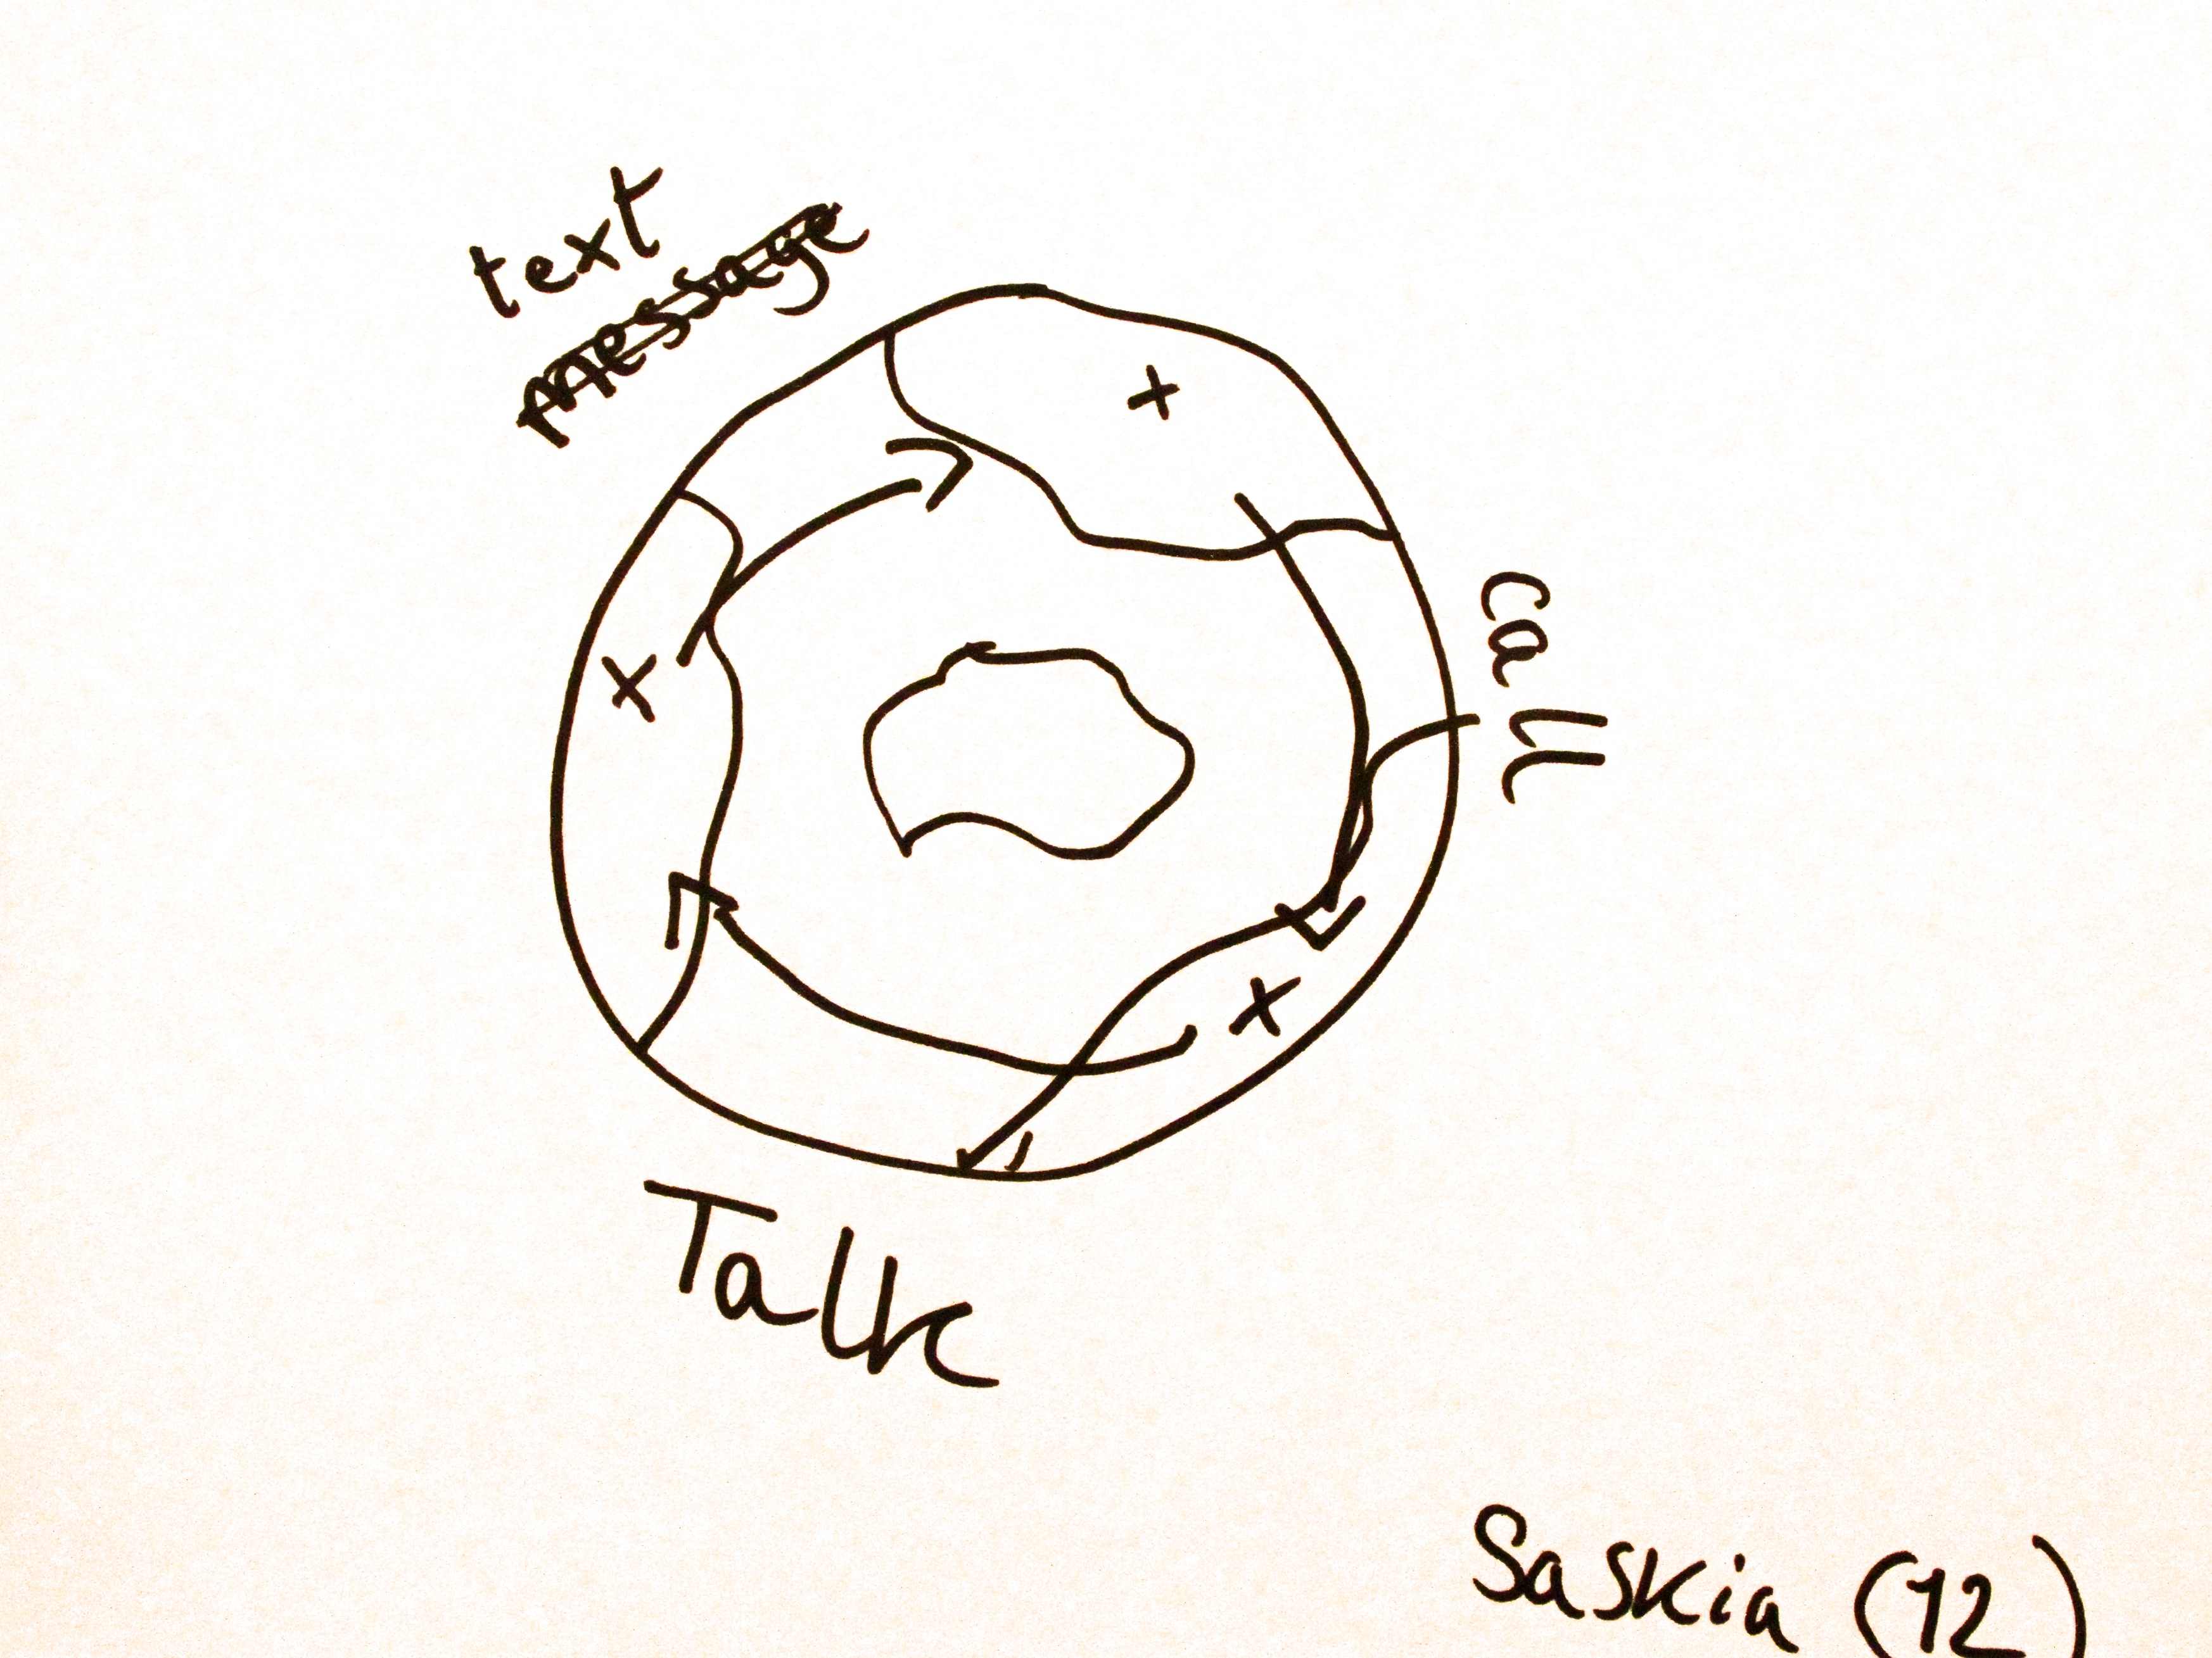 text
message
call
Talk
Saskia (12)